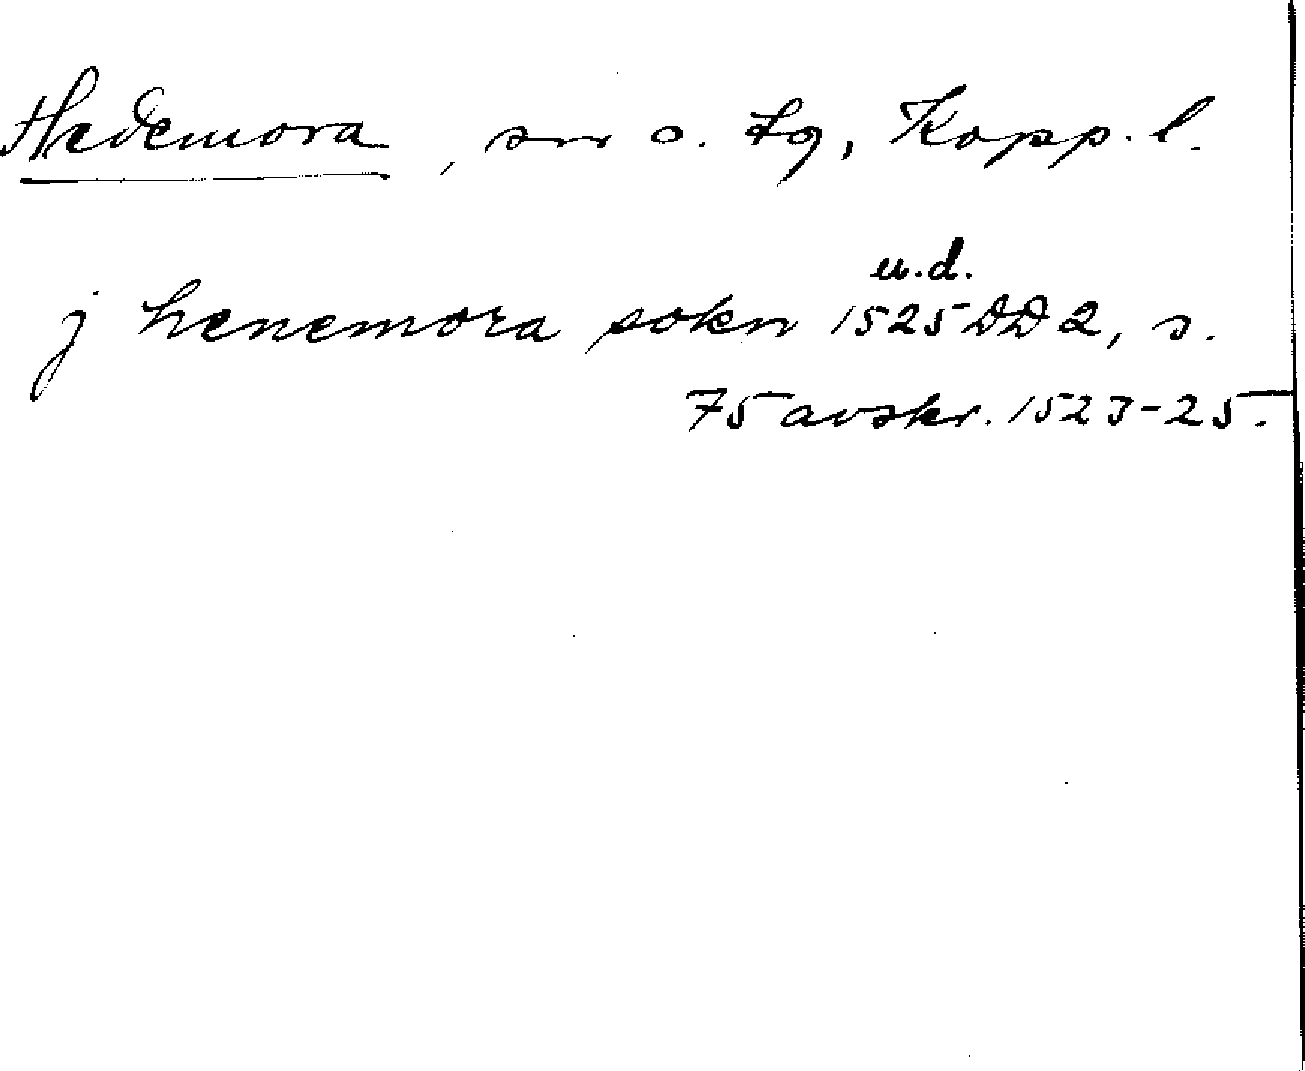 Hedemora, sn o. tg, Kopp. l.
u.d.
j henemora sokn 1525 DD 2, s.
75 avskr. 1523-25.